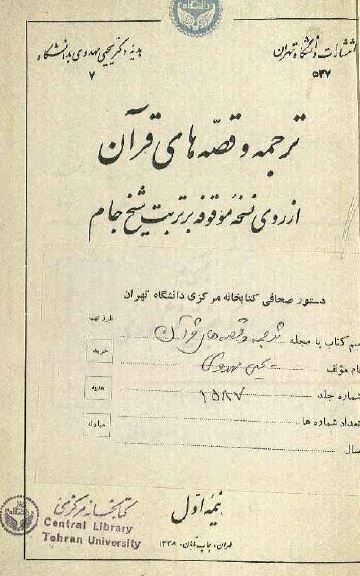 انتشارات دانشگاه تهران
۵۴۷
هدیه دکتر یحیی مهدوی بدانشگاه
۷
ترجمه و قصّه های قرآن
از روی نسخهٔ موقوفه بر تربت شیخ جام
دستور صحافی کتابخانه مرکزی دانشگاه تهران
اسم کتاب یا مجله ترجمه و قصه های قرآن
خرید
نام مؤلف یحیی مهدوی
شماره جلد ۱۵۸۷
هدیه
تعداد شماره ها
مبادله
سال
نیمهٔ اول
کتابخانه مرکزی
Central Library
Tehran University
تهران، چاپ خانه، ۱۳۳۸